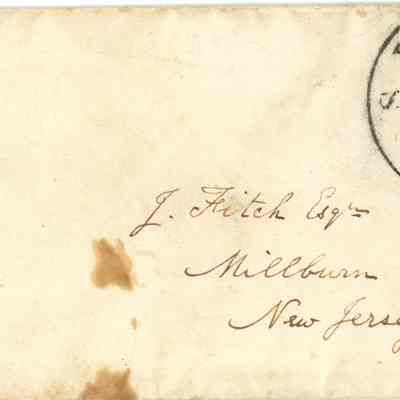 J. Fitch Esqr
Millburn
New Jerse